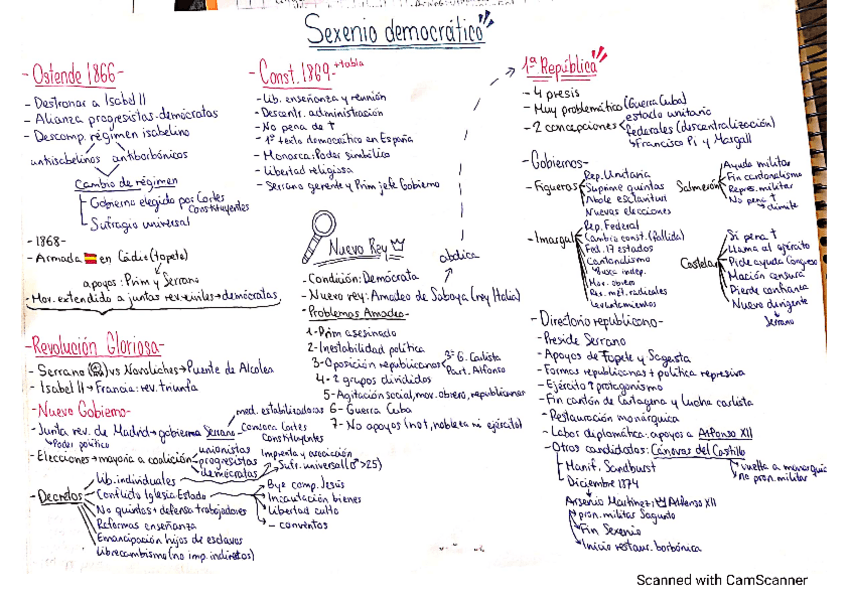 Sexenio democrático
-Ostende 1866-
- Destronar a Isabel II
- Alianza progresistas-demócratas
- Descomp. régimen isabelino
antiisabelinos antiborbónicos
Cambio de régimen
Gobierno elegido por Cortes
Constituyentes
Sufragio universal
-1868-
- Armada en Cádiz (Topete)
apoyos: Prim y Serrano
- Mov. extendido a juntas rev. civiles → demócratas
-Revolución Gloriosa-
- Serrano vs Novaliches → Puente de Alcolea
- Isabel II → Francia: rev. triunfa
-Nuevo Gobierno-
- Junta rev. de Madrid → gobierna Serrano
med. estabilizadoras
convoca Cortes
Constituyentes
Poder político
- Elecciones → mayoría a coalición
unionistas
progresistas
demócratas
- Decretos
Lib. individuales
Imprenta y asociación
Sufr. universal (♂ >25)
Conflicto Iglesia Estado
Bye comp. Jesús
Incautación bienes
Libertad culto
- conventos
No quintas + defensa trabajadores
Reformas enseñanza
Emancipación hijos de esclavos
Librecambismo (no imp. indirectos)
-Const. 1869- +tabla
- Lib. enseñanza y reunión
- Descentr. administración
- No pena de †
- 1º texto democrático en España
- Monarca: Poder simbólico
- Libertad religiosa
- Serrano gerente y Prim jefe Gobierno
Nuevo Rey
abdica
- Condición: Demócrata
- Nuevo rey: Amadeo de Saboya (rey Italia)
- Problemas Amadeo-
1- Prim asesinado
2- Inestabilidad política
3- Oposición republicanos
3ª G. Carlista
Part. Alfonso
4- 2 grupos divididos
5- Agitación social, mov. obrero, republicanos
6- Guerra Cuba
7- No apoyos (not, nobleza ni ejército)
1ª República
- 4 presis
- Muy problemático (Guerra Cuba)
- 2 concepciones
estado unitario
federales (descentralización)
Francisco Pi y Margall
-Gobiernos-
- Figueras
Rep. Unitaria
Suprime quintas
Abole esclavitud
Nuevas elecciones
Salmerón
Ayuda militar
Fin cantonalismo
Repres. militar
No pena †
dimite
- Imargul
Rep. Federal
Cambio const. (fallida)
Fed. 17 estados
Cantonalismo
Busca indep.
Mov. obrero
Rei. mét. radicales
Levantamientos
Castelar
Si pena †
Llama al ejército
Pide ayuda Congreso
Moción censura
Pierde confianza
Nuevo dirigente
Serrano
-Directorio republicano-
- Preside Serrano
- Apoyos de Topete y Sagasta
- Formas republicanas + política represiva
- Ejército ↑ protagonismo
- Fin cantón de Cartagena y lucha carlista
- Restauración monárquica
- Labor diplomática: apoyos a Alfonso XII
- Otros candidatos: Cánovas del Castillo
vuelta a monarquía
no pron. militar
Manif. Sandhurst
Diciembre 1874
Arsenio Martínez: Alfonso XII
pron. militar Sagunto
Fin Sexenio
Inicio restaur. borbónica
Scanned with CamScanner